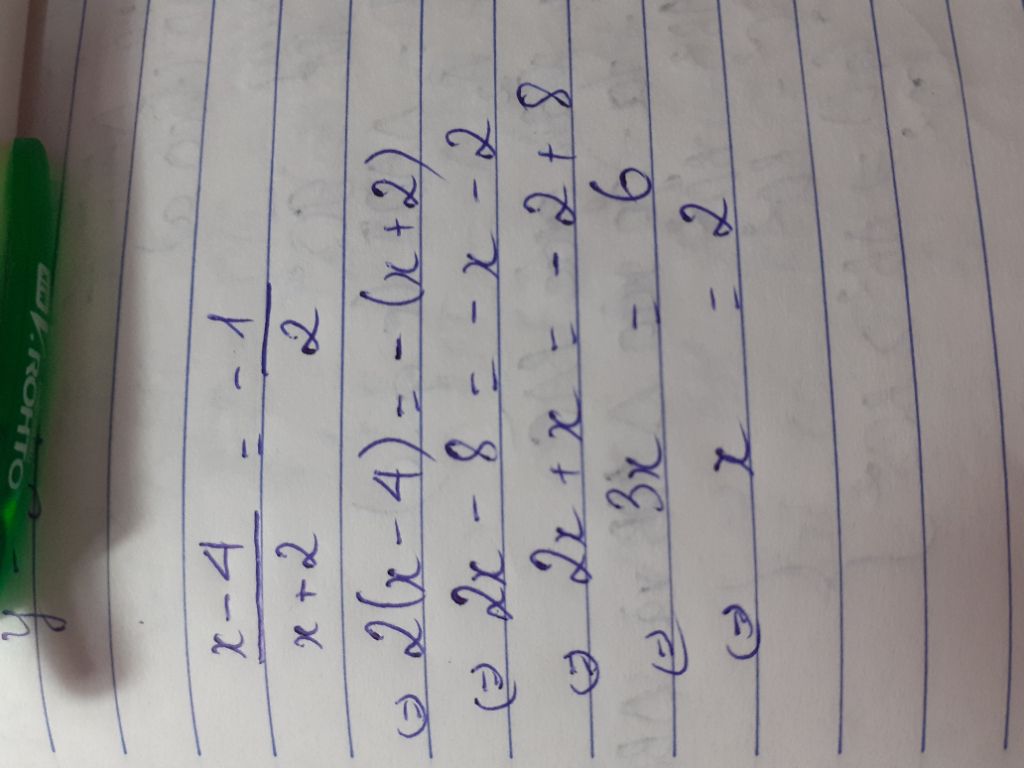 x-4/x+2 = -1/2
(=) 2(x-4) = -(x+2)
(=) 2x - 8 = -x - 2
(=) 2x + x = -2 + 8
(=) 3x = 6
(=) x = 2